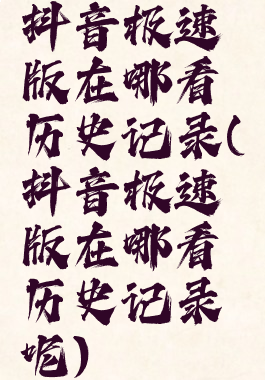 抖音极速
版在哪看
历史记录(
抖音极速
版在哪看
历史记录
呢)